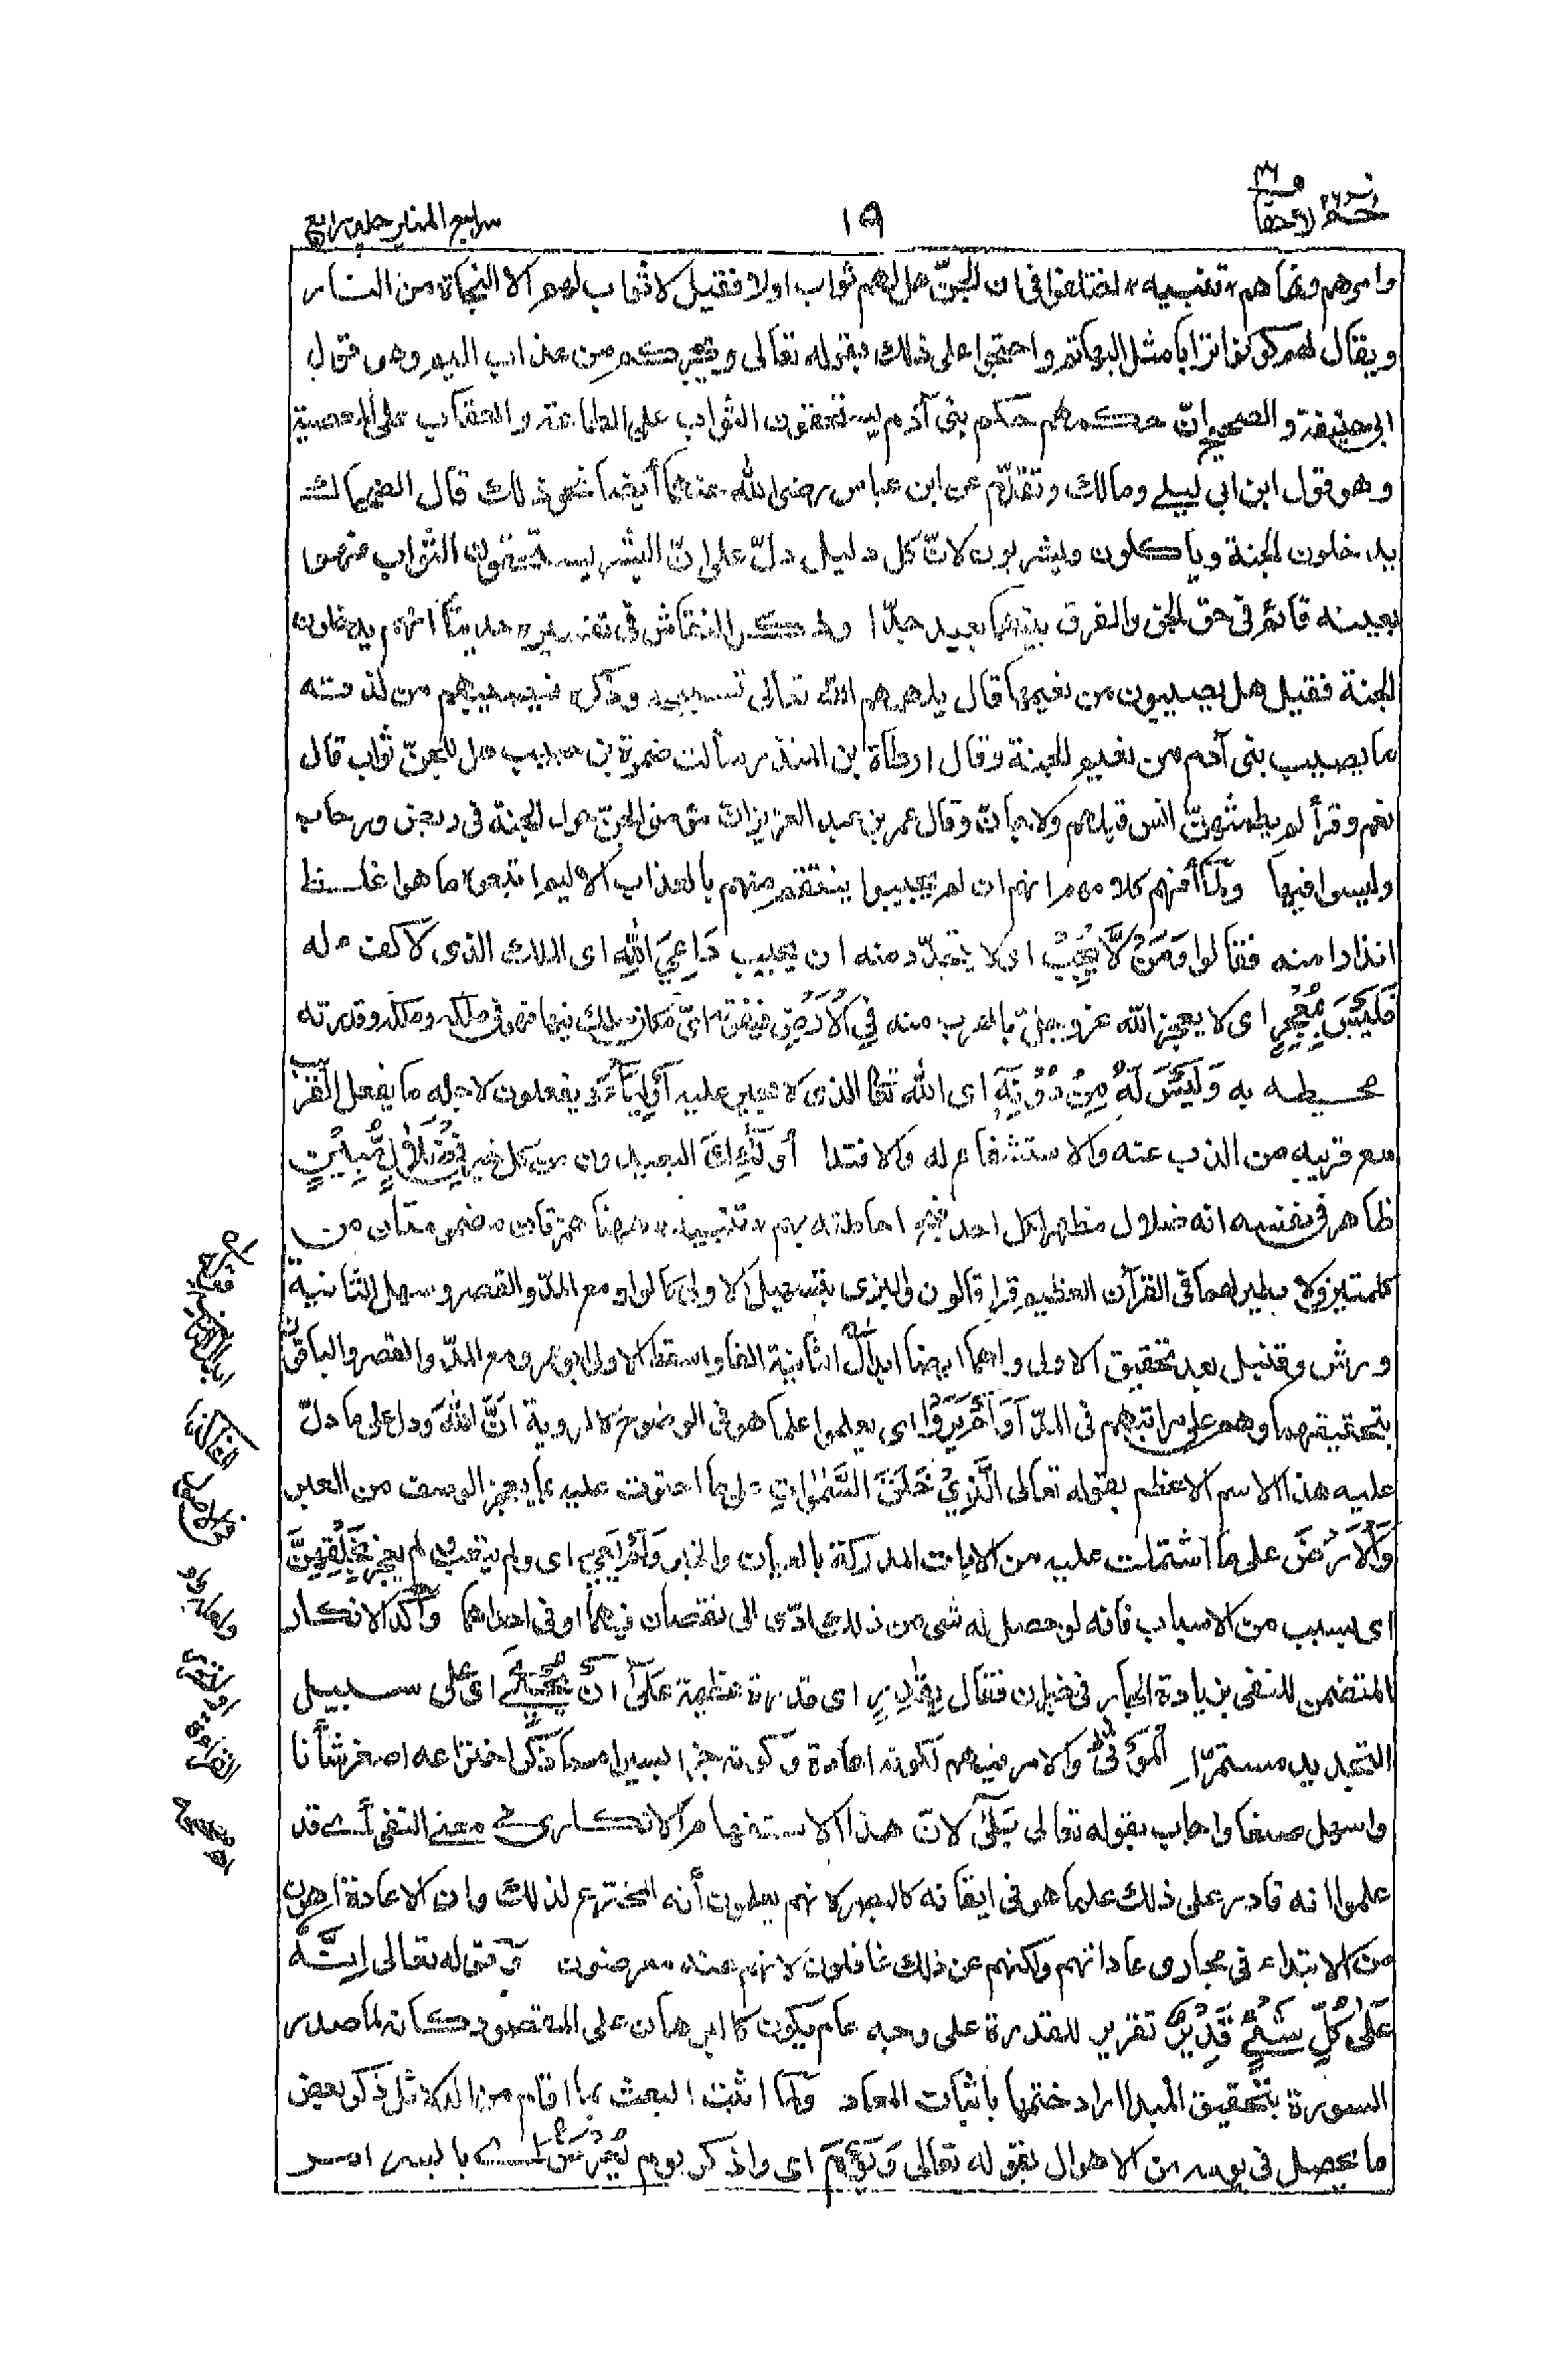 سراج المنير جلد رابع
١٩
حم الأحقاف
وامرهم ونهاهم * تنبيه * اختلفوا فى ان الجنّ هل لهم ثواب اولا فقيل لا ثواب لهم الا النجاة من النار
ويقال لهم كونوا ترابا مثل البهائم واحتجوا على ذلك بقوله تعالى ويجركم من عذاب اليم وهو قول
ابى حنيفة والصحيح انّ حكمهم حكم بنى آدم يستحقون الثواب على الطاعة والعقاب على المعصية
وهو قول ابن ابى ليلى ومالك وتقدّم عن ابن عباس رضى الله عنهما أيضا نحو ذلك قال الضحاك
يدخلون الجنة وياكلون ويشربون لانّ كل دليل دلّ على انّ البشر يستحقون الثواب فهو
بعينه قائم فى حق الجن والفرق بينهما بعيد جدّا وذكر النقاش فى تفسيره حديثا انهم يدخلون
الجنة فقيل هل يصيبون من نعيمها قال يلهمهم الله تعالى تسبيحه وذكره فيصيبهم من لذته
ما يصيب بنى آدم من نعيم الجنة وقال ارطأة بن المنذر سألت ضمرة بن حبيب هل للجنّ ثواب قال
نعم وقرأ لم يطمثهنّ انس قبلهم ولا جانّ وقال عمر بن عبد العزيز انّ مؤمنى الجنّ حول الجنة فى ربض ورحاب
وليسوا فيها ولما أفهم كلامهم انهم ان لم يجيبوا ينتقم منهم بالعذاب الاليم اتبعوه ما هو اغلظ
انذارا منه فقالوا وَمَنْ لَّا يُجِبْ اى لا يتجدّد منه ان يجيب دَاعِيَ اللهِ اى الملك الذى لا كفء له
فَلَيْسَ بِمُعْجِزٍ اى لا يعجز الله عزوجل بالهرب منه فِي الْأَرْضِ فيفوته اىّ مكان سلك فيها فهو فى ملكه وملكه وقدرته
محيطه به وَلَيْسَ لَهٗ مِنْ دُوْنِهٖ اى الله تعا الذى لا مجير عليه اَوْلِيَآءُ يفعلون لاجله ما يفعل القريب
مع قريبه من الذب عنه والاستشفاع له والافتدا أُولٰٓئِكَ البعيدون من كل خير فِيْ ضَلٰلٍ مُّبِيْنٍ
ظاهر فى نفسه انه ضلال مظهر لكل احد احاطته بهم * تنبيه * ههنا همزتان مضمومتان من
كلمتين ولا نظير لهما فى القرآن العظيم قرا قالون والبزى بتسهيل الاولى كالواو مع المدّ والقصر وسهل الثانية
ورش وقنبل بعد تحقيق الاولى ولهما ايضا ابدال الثانية الفا واسقط الاولى ابو عمرو مع المدّ والقصر والباقون
بتحقيقهما وهم على مراتبهم فى المدّ اَوَلَمْ يَرَوْا اى يعلموا علما هو فى الوضوح كالروية اَنَّ اللهَ ودل على ما دلّ
عليه هذا الاسم الاعظم بقوله تعالى الَّذِيْ خَلَقَ السَّمٰوٰتِ على ما احتوت عليه مما يعجز الوصف من العبر
وَالْاَرْضَ على ما اشتملت عليه من الايات المدركة بالعيان والخبر وَلَمْ يَعْيَ اى ولم يتعب ولم يعجز بِخَلْقِهِنَّ
اى بسبب من الاسباب فانه لو حصل له شى من ذلك ادّى الى نقصان فيهما او فى احداهما وأكد الانكار
المتضمن للنفى بزيادة الجار فى خبران فقال بِقٰدِرٍ اى قدرة عظيمة عَلٰٓى اَنْ يُّحْيِۦَ اى على سبيل
التجديد مستمرّا الْمَوْتٰى والامر فيهم لكونه اعادة وكونه جزا يسيرا مما ذكر اختراعه اصغر شأنا
واسهل صنعا واجاب بقوله تعالى بَلٰٓى لانّ هذا الاستفهام الانكارى فى معنى النفى أى قد
علموا انه قادر على ذلك علما هو فى ايقانه كالبصر لانهم يعلمون أنه المخترع لذلك وان الاعادة اهون
من الابتداء فى مجارى عاداتهم ولكنهم عن ذلك غافلون لانهم عنه معرضون وقوله تعالى اِنَّهٗ
عَلٰى كُلِّ شَيْءٍ قَدِيْرٌ تقرير للقدرة على وجه عام يكون كالبرهان على المقصود كانه لما صدر
السورة بتحقيق المبدا اراد ختمها باثبات المعاد ولما اثبت البعث بما اقام من الدلائل ذكر بعض
ما يحصل فى يومه من الاهوال بقوله تعالى وَيَوْمَ اى واذكر يوم يُعْرَضُ اى بايسر امر